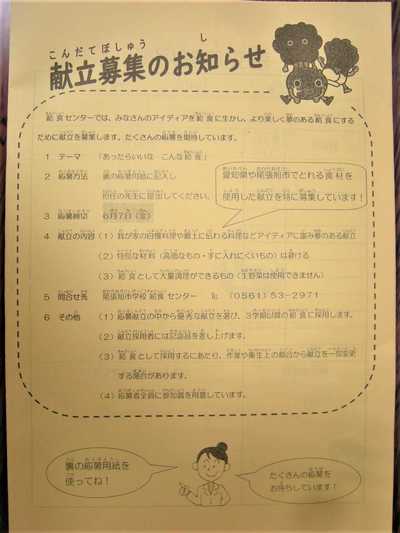 こんだてぼしゅう　し
献立募集のお知らせ
給食センターでは、みなさんのアイディアを給食に生かし、より楽しく夢のある給食にする
ために献立を募集します。たくさんの応募を期待しています。
1　テーマ　「あったらいいな　こんな給食」
2　応募方法　裏の応募用紙に記入し
担任の先生に提出してください。
愛知県や尾張旭市でとれる食材を
使用した献立を特に募集しています！
3　応募締切　6月7日（金）
4　献立の内容　（1）我が家の自慢料理や郷土に伝わる料理などアイディアに富み夢のある献立
（2）特殊な材料（高価なもの・手に入れにくいもの）は避ける
（3）給食として大量調理ができるもの（生野菜は使用できません）
5　問合せ先　尾張旭市学校給食センター　℡　（0561）53-2971
6　その他　（1）応募献立の中から優秀な献立を選び、3学期以降の給食に採用します。
（2）献立採用者には記念品を差し上げます。
（3）給食として採用するにあたり、作業や衛生上の都合から献立を一部変更
する場合があります。
（4）応募者全員に参加賞を用意しています。
裏の応募用紙を
使ってね！
たくさんの応募を
お待ちしています！